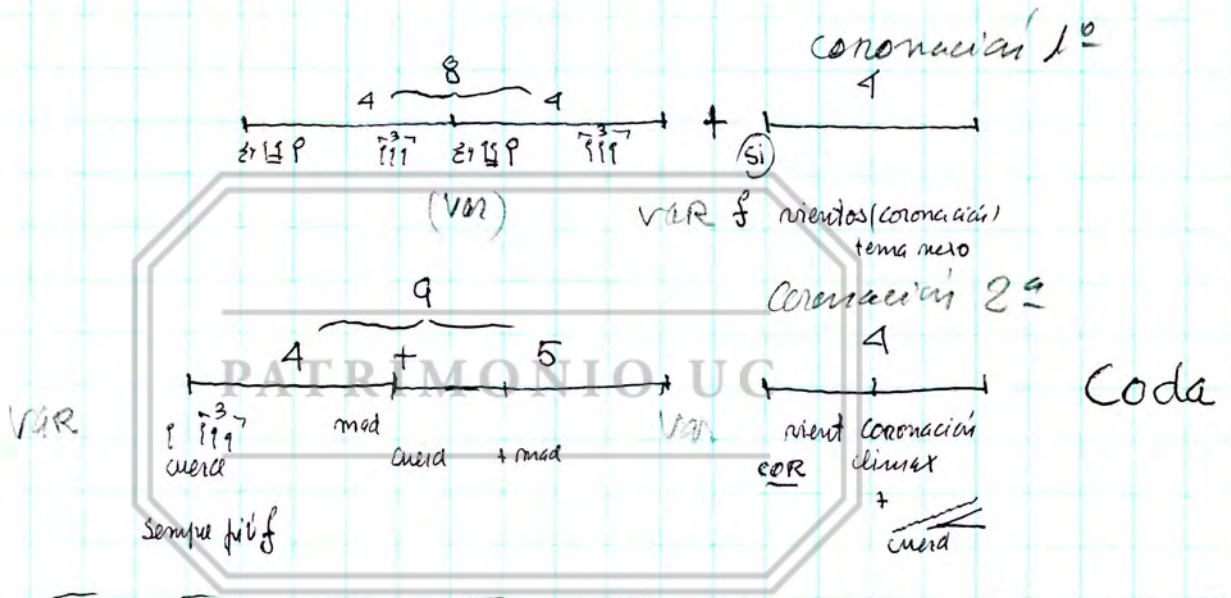 coronación 1º
8
4 4
4
3 3
+ (si)
(Var) VAR f vientos (coronación)
tema nexo
9
Coronación 2ª
4 + 5
4
PATRIMONIO UC
Coda
VAR 3 mad Var vient coronación
cuerd cuerd + mad COR climax
+
sempre più f
cuerd